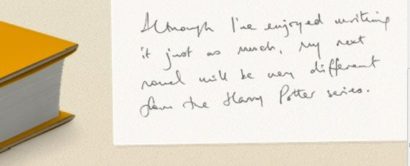 Although I've enjoyed writing
it just as much, my next
novel will be very different
from the Harry Potter series.